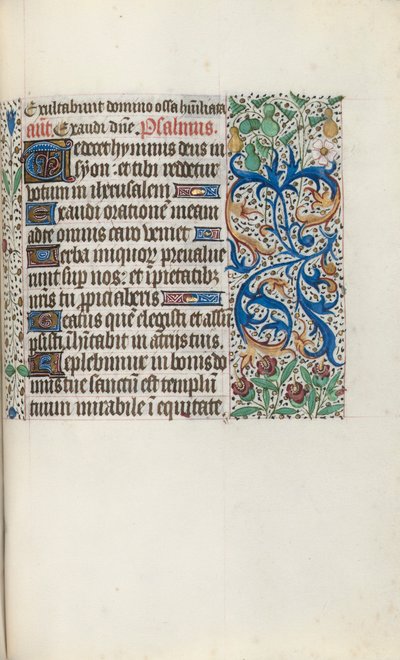 Exultabunt domino ossa hūiliata
añt Exaudi dn̄e Psalmus.
Te decet hymnus deus in
syon: et tibi reddetur
votum in iherusalem
Exaudi orationē meam
ad te omnis caro veniet
Verba iniquoȝ preualue
runt sup nos: et īpietatibꝰ
nr̄is tu ꝓpiciaberis
Beatus quē elegisti et assūp
sisti īhabit in atrijs tuis.
Replebimur in bonis do
mus tue sanctū est templū
tuum mirabile ī equitate